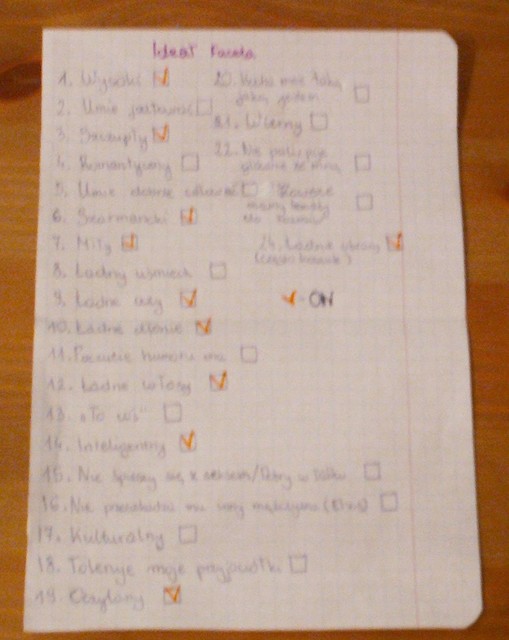 Ideał Faceta
1. Wysoki
2. Umie
3. Szczupły
4. Romantyczny
5. Umie dobrze
6. Szarmancki
7. Miły
8. Ładny uśmiech
9. Ładne oczy
10. Ładne dłonie
11. Poczucie humoru
12. Ładne włosy
13. „To coś”
14. Inteligentny
15. Nie śpieszy się z seksem/Dobry w łóżku
16. Nie przeszkadza mu inny mężczyzna
17. Kulturalny
18. Toleruje moje przyjaciółki
19. Oczytany
20. Kocha mnie taką
jaką jestem
21. Wierny
22. Nie
ze mną
Zawsze
mamy tematy
do
24. Ładne
✓ - ON